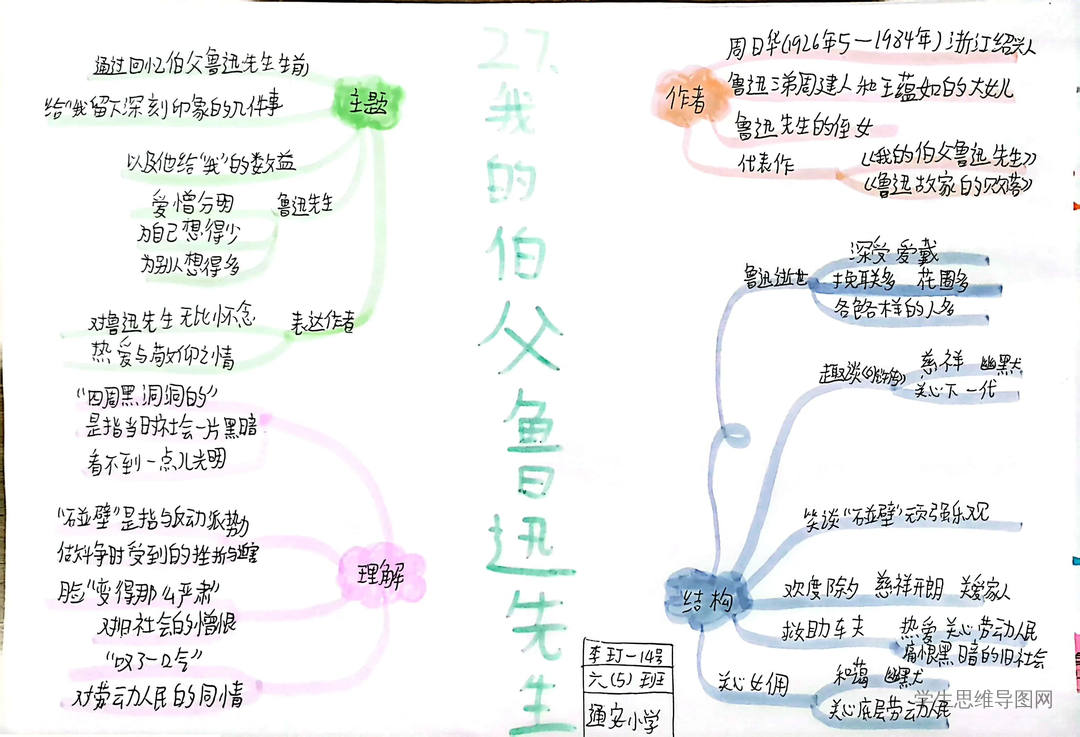 27、我的伯父鲁迅先生
主题
通过回忆伯父鲁迅先生生前
给“我”留下深刻印象的几件事
以及他给“我”的教益
鲁迅先生
爱憎分明
为自己想得少
为别人想得多
表达作者
对鲁迅先生无比怀念
热爱与敬仰之情
理解
“四周黑洞洞的”
是指当时社会一片黑暗
看不到一点儿光明
“碰壁”是指与反动派势力
做斗争时受到的挫折与
脸“变得那么严肃”
对旧社会的憎恨
“叹了一口气”
对劳动人民的同情
作者
周日华(1926年5—1984年)浙江绍兴人
鲁迅三弟周建人和王蕴如的大女儿
鲁迅先生的侄女
代表作
《我的伯父鲁迅先生》
《鲁迅故家的败落》
结构
鲁迅逝世
深受 爱戴
挽联多 花圈多
各色各样的人多
趣谈《水浒传》
慈祥 幽默
关心下一代
笑谈“碰壁”顽强乐观
欢度除夕 慈祥开朗 关爱家人
救助车夫
热爱 关心劳动人民
痛恨黑暗的旧社会
关心女佣
和蔼 幽默
关心底层劳动人民
李玎一14号
六(5)班
通安小学
学生思维导图网